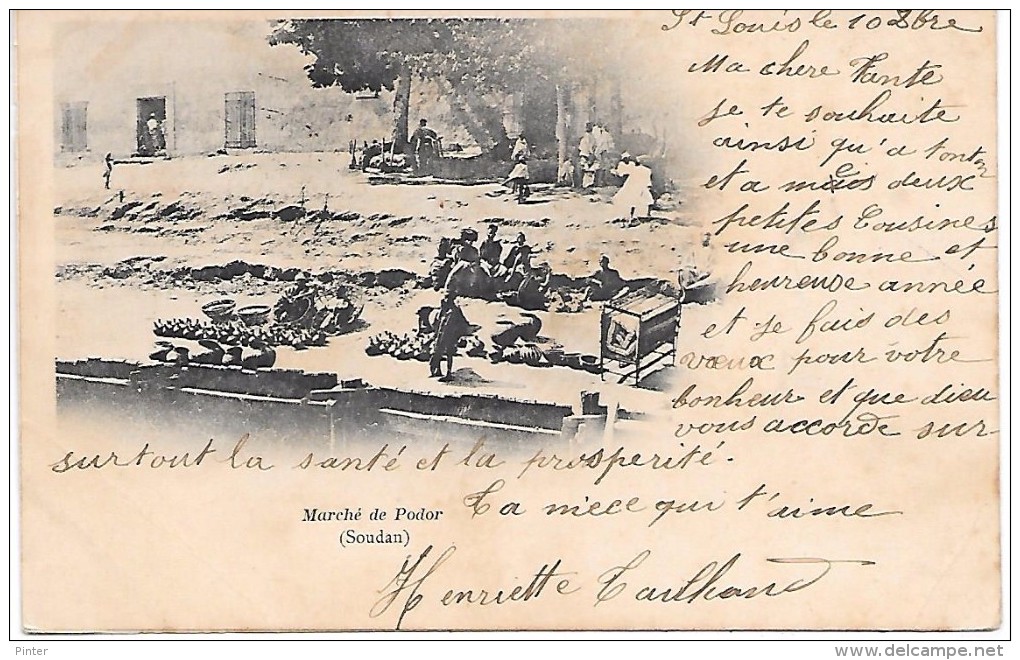 St Louis le 10 Xbre
Ma chere Tante
Je te souhaite
ainsi qu'a tonton
et a mais deux
petites Cousines
une bonne et
heureuse année
et je fais des
voeux pour votre
bonheur et que dieu
vous accorde sur-
surtout la santé et la prosperité.
Ta niece qui t'aime
Marché de Podor
(Soudan)
Henriette
Pinter
http://www.delcampe.net